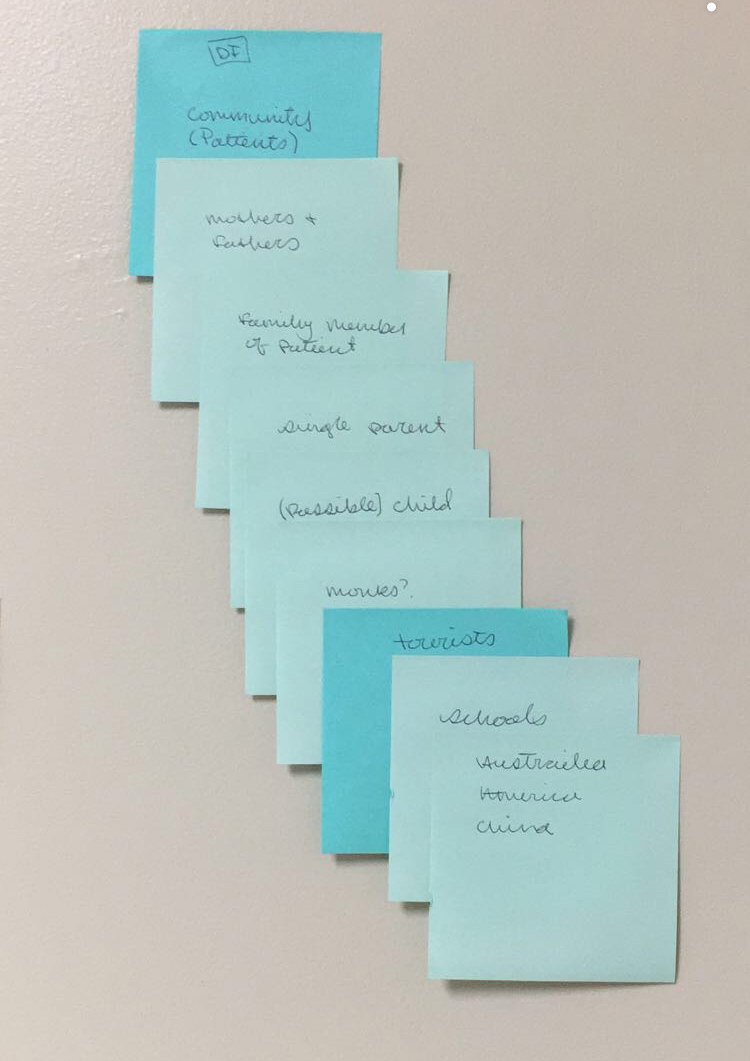 DI
community
(Patients)
mothers +
fathers
family member
of patient
single parent
(possible) child
monks?
tourists
schools
Australia
America
China